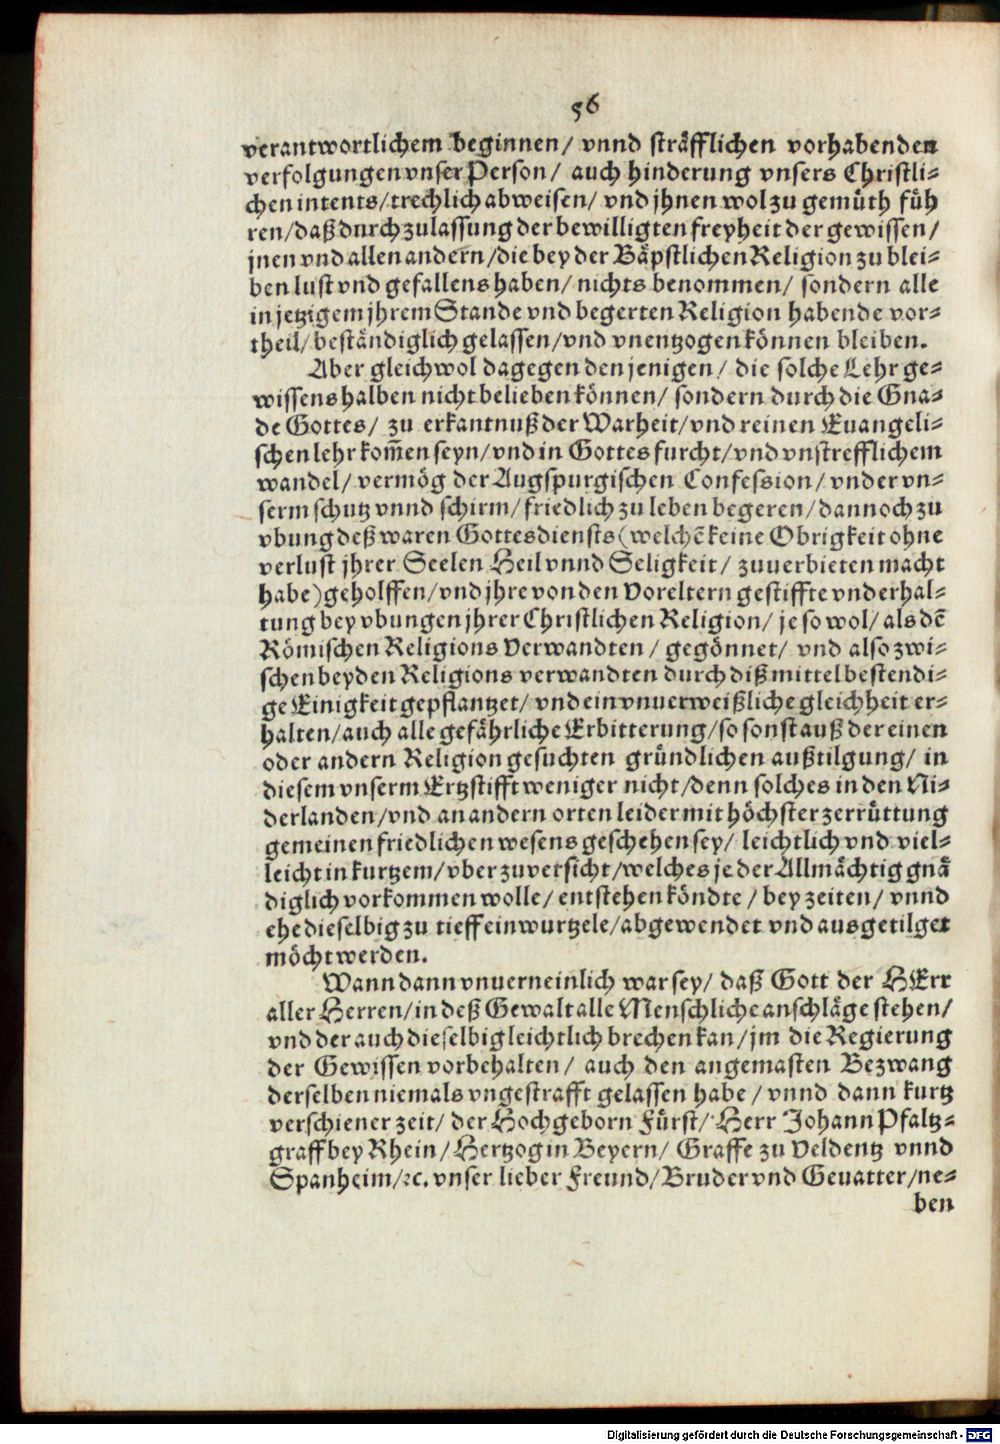 56
verantwortlichem beginnen/ vnnd sträfflichen vorhabenden
verfolgungen vnser Person/ auch hinderung vnsers Christli-
chen intents/ trechlich abweisen/ vnd jhnen wol zu gemüth füh
ren/ daß durch zulassung der bewilligten freyheit der gewissen/
jnen vnd allen andern/ die bey der Bäpstlichen Religion zu blei-
ben lust vnd gefallens haben/ nichts benommen/ sondern alle
in jetzigem jhrem Stande vnd begerten Religion habende vor-
theil/ beständiglich gelassen/ vnd vnentzogen können bleiben.
Aber gleichwol dagegen denjenigen/ die solche Lehr ge-
wissens halben nicht belieben können/ sondern durch die Gna-
de Gottes/ zu erkantnuß der Warheit/ vnd reinen Euangeli-
schen lehr kom̄en seyn/ vnd in Gottes furcht/ vnd vnstrefflichem
wandel/ vermög der Augspurgischen Confession/ vnder vn-
serm schutz vnnd schirm/ friedlich zu leben begeren/ dannoch zu
vbung deß waren Gottesdiensts (welchē keine Obrigkeit ohne
verlust jhrer Seelen Heil vnnd Seligkeit/ zuuerbieten macht
habe) geholffen/ vnd jhre von den Voreltern gestiffte vnderhal-
tung bey vbungen jhrer Christlichen Religion/ je so wol/ als dē
Römischen Religions Verwandten/ gegönnet/ vnd also zwi-
schen beyden Religions verwandten durch diß mittel bestendi-
ge Einigkeit gepflantzet/ vnd ein vnuerweißliche gleichheit er-
halten/ auch alle gefährliche Erbitterung/ so sonst auß der einen
oder andern Religion gesuchten gründlichen außtilgung/ in
diesem vnserm Ertzstifft weniger nicht/ denn solches in den Ni-
derlanden/ vnd an andern orten leider mit höchster zerrüttung
gemeinen friedlichen wesens geschehen sey/ leichtlich vnd viel-
leicht in kurtzem/ vber zuversicht/ welches je der Allmächtig gnä
diglich vorkommen wolle/ entstehen köndte/ bey zeiten/ vnnd
ehe dieselbig zu tieff einwurtzele/ abgewendet vnd ausgetilget
möcht werden.
Wann dann vnuerneinlich war sey/ daß Gott der HErr
aller Herren/ in deß Gewalt alle Menschliche anschläge stehen/
vnd der auch dieselbig leichtlich brechen kan/ jm die Regierung
der Gewissen vorbehalten/ auch den angemasten Bezwang
derselben niemals vngestrafft gelassen habe/ vnnd dann kurtz
verschiener zeit/ der Hochgeborn Fürst/ Herr Johann Pfaltz-
graff bey Rhein/ Hertzog in Beyern/ Graffe zu Veldentz vnnd
Spanheim/ ꝛc. vnser lieber Freund/ Bruder vnd Geuatter/ ne-
ben
Digitalisierung gefördert durch die Deutsche Forschungsgemeinschaft - DFG